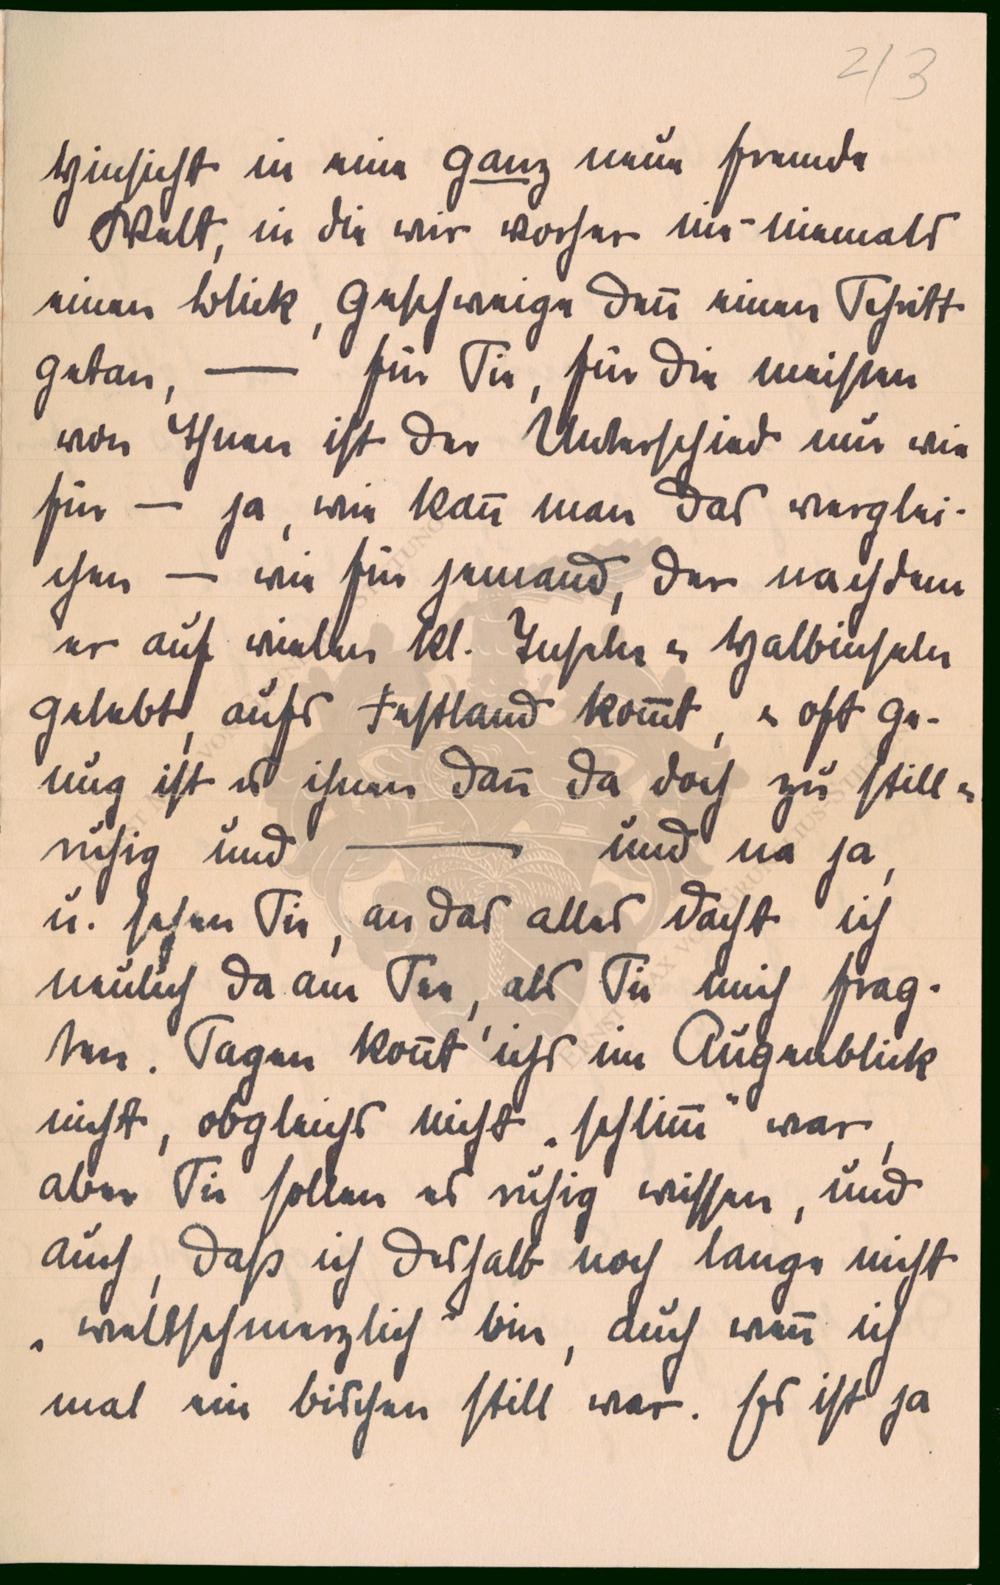 2/3
Hinsicht in eine ganz neue fremde
Welt, in die wir vorher nie-niemals
einen Blick, geschweige den̅ einen Schritt
getan, — für Sie, für die meisten
von Ihnen ist der Unterschied nur wie
für — ja, wie kan̅ man das verglei-
chen — wie für jemand, der nachdem
er auf vielen kl. Inseln u Halbinseln
gelebt, aufs Festland kom̅t, u oft ge-
nug ist es ihnen dan̅ da doch zu still u
ruhig und — und na ja,
u. sehen Sie, an das alles dacht ich
neulich da am See, als Sie mich frag-
ten. Sagen kon̅t' ichs im Augenblick
nicht, obgleichs nicht „schlim̅" war,
aber Sie sollen es ruhig wissen, und
auch, daß ich deshalb noch lange nicht
„weltschmerzlich" bin, auch wen̅ ich
mal ein bischen still war. Es ist ja